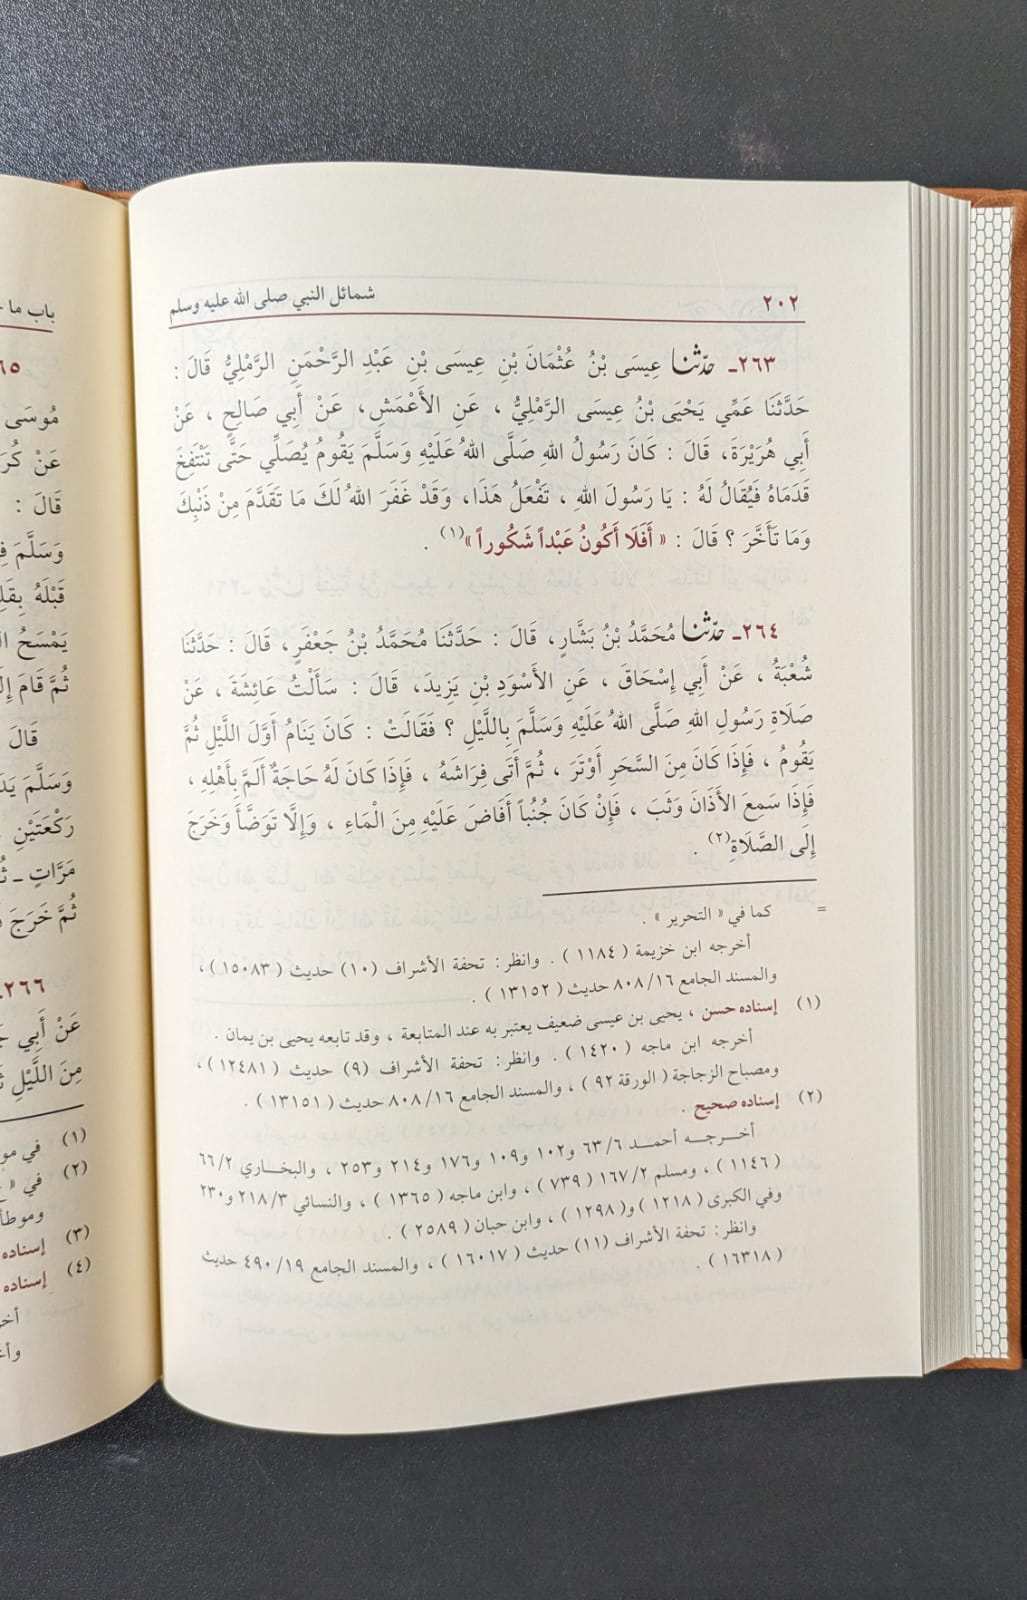 ٢٠٢ شمائل النبي صلى الله عليه وسلم
٢٦٣ـ حدّثنا عِيسَى بْنُ عُثْمَانَ بْنِ عِيسَى بْنِ عَبْدِ الرَّحْمَنِ الرَّمْلِيُّ قَالَ :
حَدَّثَنَا عَمِّي يَحْيَى بْنُ عِيسَى الرَّمْلِيُّ ، عَنِ الأَعْمَشِ، عَنْ أَبِي صَالِحٍ ، عَنْ
أَبِي هُرَيْرَةَ، قَالَ : كَانَ رَسُولُ اللهِ صَلَّى اللهُ عَلَيْهِ وَسَلَّمَ يَقُومُ يُصَلِّي حَتَّى تَنْتَفِخَ
قَدَمَاهُ فَيُقَالُ لَهُ : يَا رَسُولَ اللهِ ، تَفْعَلُ هَذَا، وَقَدْ غَفَرَ اللهُ لَكَ مَا تَقَدَّمَ مِنْ ذَنْبِكَ
وَمَا تَأَخَّرَ ؟ قَالَ : « أَفَلَا أَكُونُ عَبْداً شَكُوراً »(١) .
٢٦٤ـ حدّثنا مُحَمَّدُ بْنُ بَشَّارٍ، قَالَ : حَدَّثَنَا مُحَمَّدُ بْنُ جَعْفَرٍ، قَالَ : حَدَّثَنَا
شُعْبَةُ ، عَنْ أَبِي إِسْحَاقَ ، عَنِ الأَسْوَدِ بْنِ يَزِيدَ، قَالَ : سَأَلْتُ عَائِشَةَ ، عَنْ
صَلَاةِ رَسُولِ اللهِ صَلَّى اللهُ عَلَيْهِ وَسَلَّمَ بِاللَّيْلِ ؟ فَقَالَتْ : كَانَ يَنَامُ أَوَّلَ اللَّيْلِ ثُمَّ
يَقُومُ ، فَإِذَا كَانَ مِنَ السَّحَرِ أَوْتَرَ ، ثُمَّ أَتَى فِرَاشَهُ ، فَإِذَا كَانَ لَهُ حَاجَةٌ أَلَمَّ بِأَهْلِهِ ،
فَإِذَا سَمِعَ الأَذَانَ وَثَبَ ، فَإِنْ كَانَ جُنُباً أَفَاضَ عَلَيْهِ مِنَ الْمَاءِ ، وَإِلَّا تَوَضَّأَ وَخَرَجَ
إِلَى الصَّلَاةِ(٢) .
= كما في « التحرير » .
أخرجه ابن خزيمة ( ١١٨٤ ) . وانظر: تحفة الأشراف (١٠) حديث ( ١٥٠٨٣ ) ،
والمسند الجامع ٨٠٨/١٦ حديث ( ١٣١٥٢ ) .
(١) إسناده حسن ، يحيى بن عيسى ضعيف يعتبر به عند المتابعة ، وقد تابعه يحيى بن يمان .
أخرجه ابن ماجه ( ١٤٢٠ ) . وانظر: تحفة الأشراف (٩) حديث ( ١٢٤٨١ ) ،
ومصباح الزجاجة ( الورقة ٩٢ ) ، والمسند الجامع ٨٠٨/١٦ حديث ( ١٣١٥١ ) .
(٢) إسناده صحيح .
أخرجه أحمد ٦٣/٦ و١٠٢ و١٠٩ و١٧٦ و٢١٤ و٢٥٣ ، والبخاري ٦٦/٢
( ١١٤٦ ) ، ومسلم ١٦٧/٢ ( ٧٣٩ ) ، وابن ماجه ( ١٣٦٥ ) ، والنسائي ٢١٨/٣ و٢٣٠
وفي الكبرى ( ١٢١٨ ) و( ١٢٩٨ ) ، وابن حبان ( ٢٥٨٩ ) .
وانظر: تحفة الأشراف (١١) حديث ( ١٦٠١٧ ) ، والمسند الجامع ٤٩٠/١٩ حديث
( ١٦٣١٨ ) .
باب ما
مُوسَى
عَنْ
قَالَ :
وَسَلَّمَ
قَبْلَهُ
يَمْسَحُ
ثُمَّ قَامَ
قَالَ
وَسَلَّمَ
رَكْعَتَيْنِ
مَرَّاتٍ ـ
ثُمَّ خَرَجَ
٢٦٦ـ
عَنْ أَبِي
مِنَ اللَّيْلِ
(١) في
(٢) في «
(٣) إسناده
(٤) إسناده